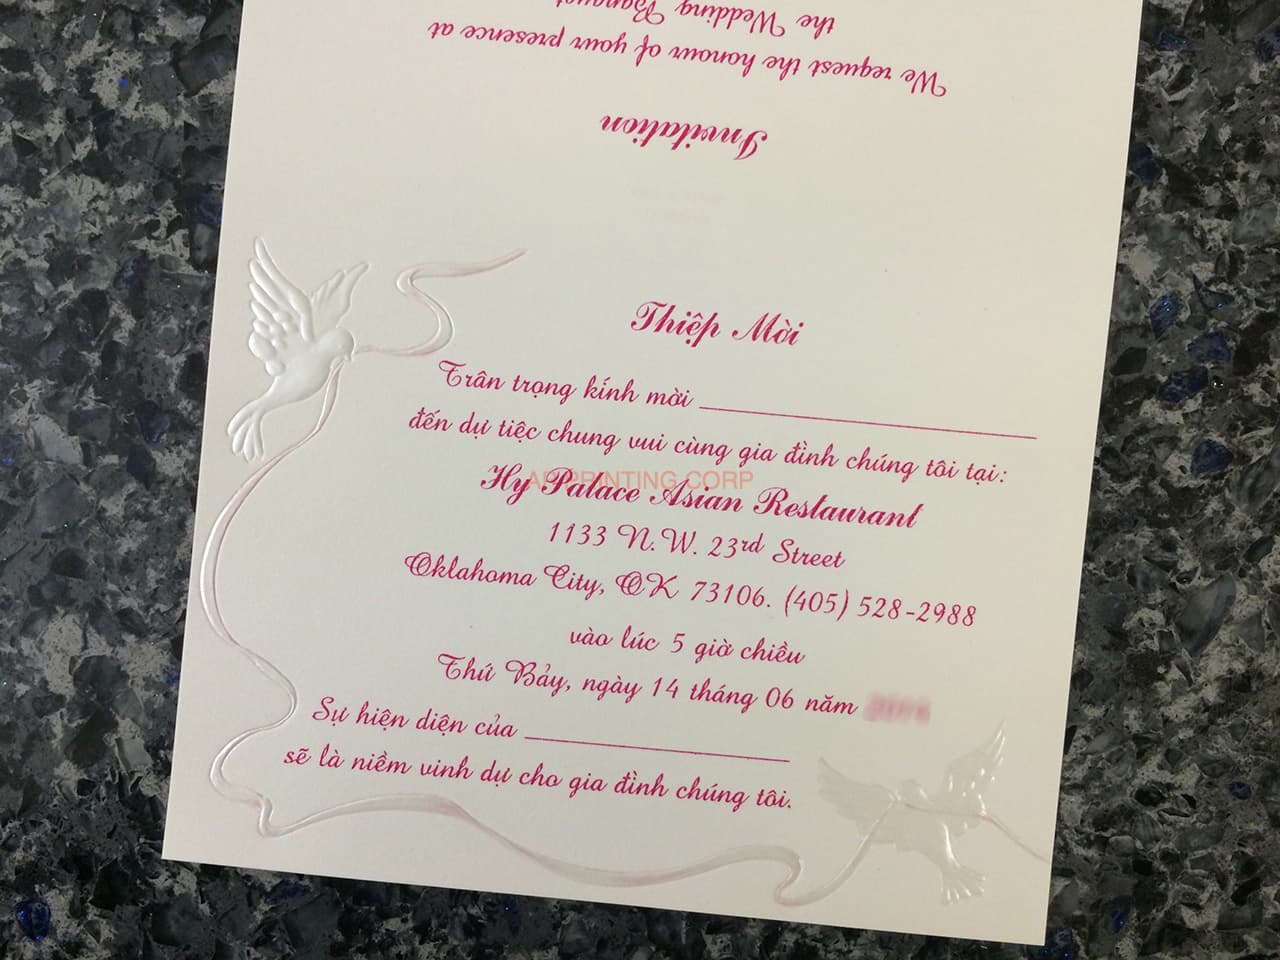 the Wedding Banquet
We request the honour of your presence at
Invitation
Thiệp Mời
Trân trọng kính mời
đến dự tiệc chung vui cùng gia đình chúng tôi tại:
APPRINTING CORP
Hy Palace Asian Restaurant
1133 N.W. 23rd Street
Oklahoma City, OK 73106. (405) 528-2988
vào lúc 5 giờ chiều
Thứ Bảy, ngày 14 tháng 06 năm
Sự hiện diện của
sẽ là niềm vinh dự cho gia đình chúng tôi.